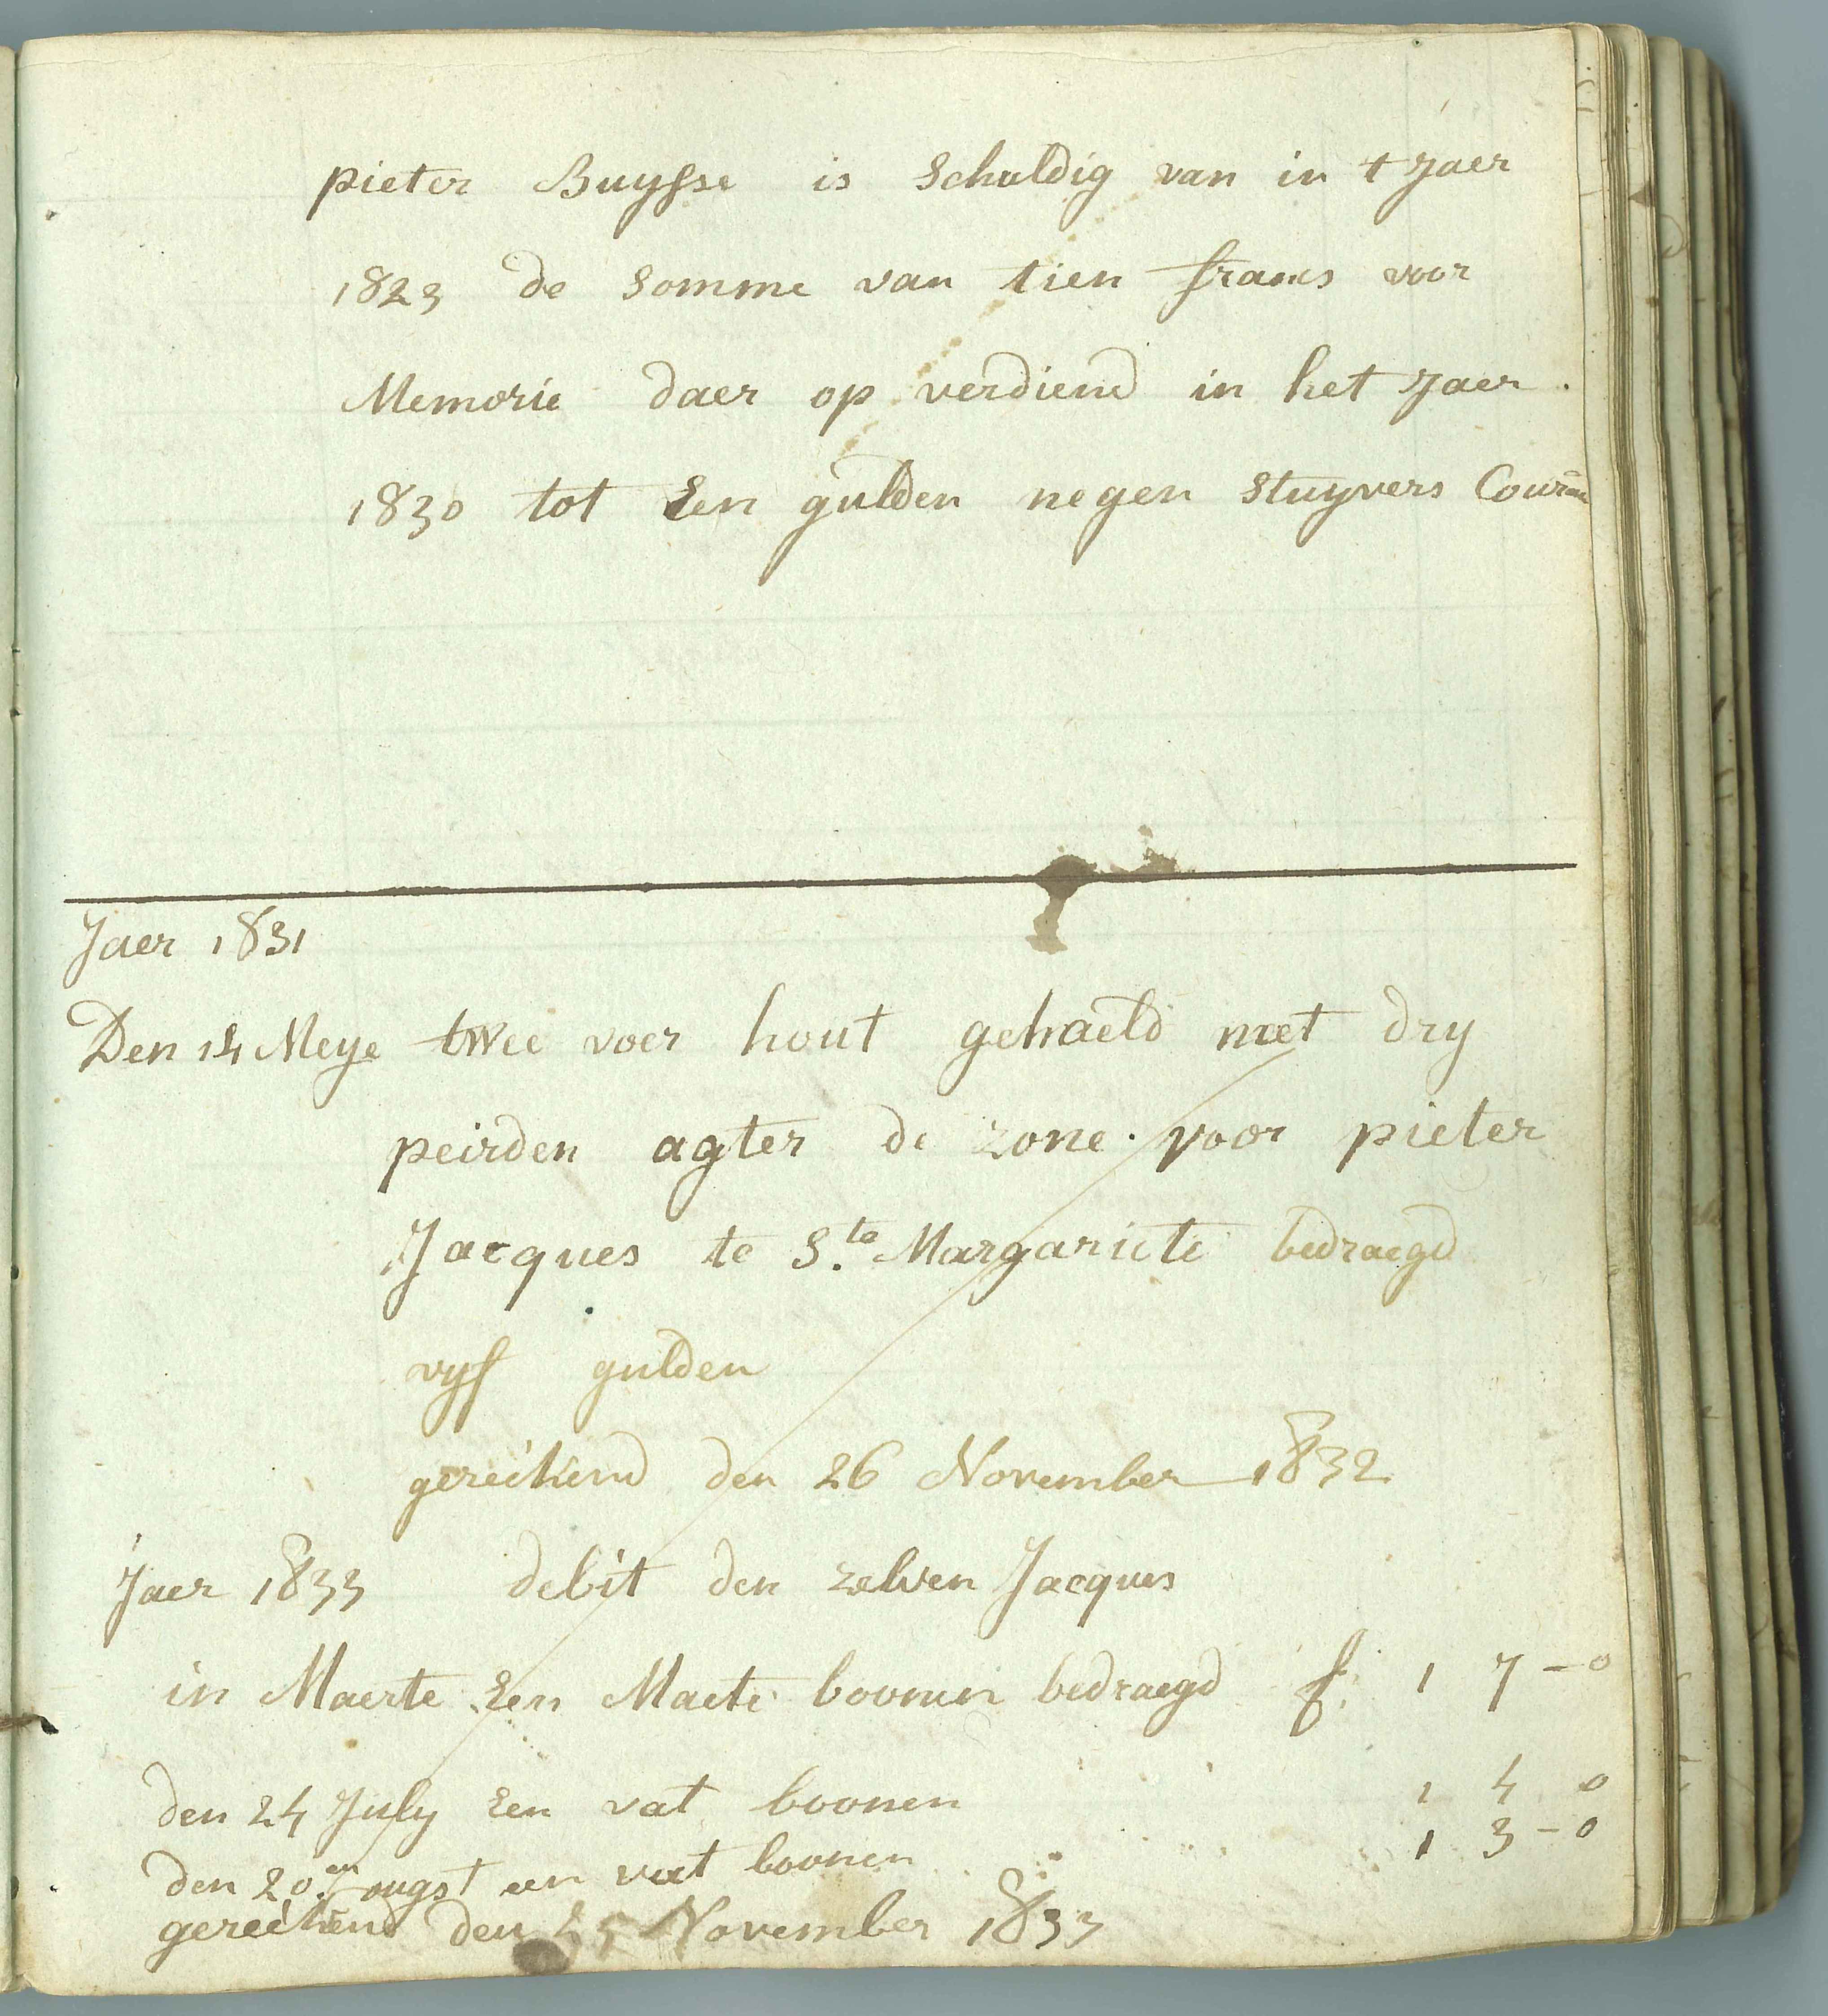 pieter Buysse is schuldig van in t Jaer
1823 de somme van tien francs voor
Memorie daer op verdiend in het Jaer.
1830 tot Een gulden negen stuyvers
Jaer 1831
Den 14 Meye twee voer hout gehaeld met dry
peirden agter de zone. voor pieter
Jacques te S.te Margariete bedraegd
vyf gulden
gereikend den 26 November 1832
Jaer 1833 debit den zelven Jacques
in Maerte Een Maete boonen bedraegd f. 1 7-0
den 24 July Een vat boonen 1 4 0
den 20.en ougst een vat boonen 1 3-0
gereikend den 25 November 1833